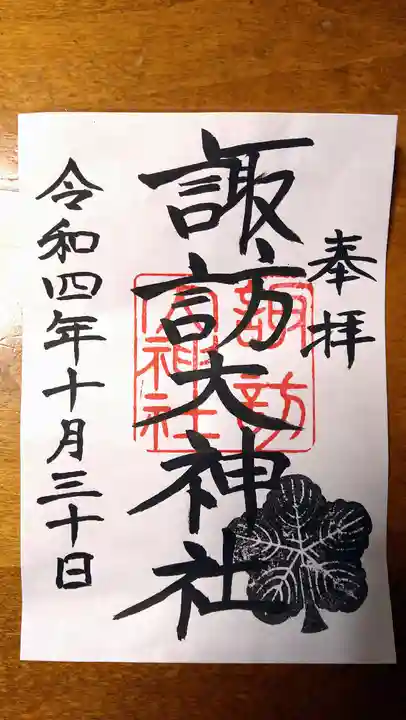 奉拝
諏訪大神社
諏訪大神社
令和四年十月三十日